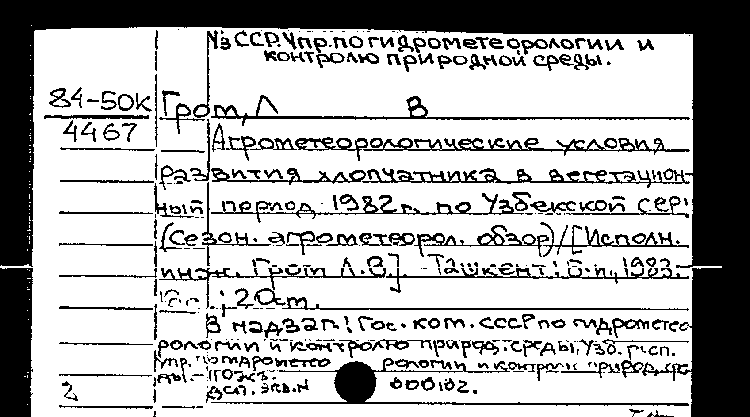 Уз ССР. Упр. по гидрометеорологии и
контролю природной среды.
84-50К Грот, Л В
4467
Агрометеорологические условия
развития хлопчатника в вегетацион-
ный период 1982 г. по Узбекской ССР:
(Сезон. агрометеорол. обзор)/[Исполн.
инж. Грот Л.В.] - Ташкент: б.и., 1983.-
; 20 см.
В надзаг: Гос. ком. СССР по гидрометео-
рологии и контролю природ. среды, Узб. респ.
упр. гидрометео рологии и контролю природ. сре-
ды.-
ДСП. экз. N 000102.
2